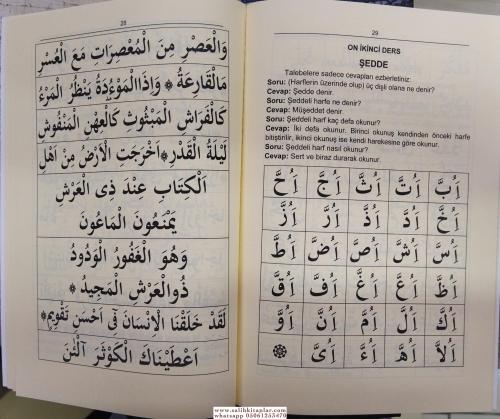 28
وَالْعَصْرِ مِنَ الْمُعْصِرَاتِ مَعَ الْعُسْرِ
مَالْقَارِعَةُ ﴿﴾ وَاِذَاالْمَوْءُدَةُ يَنْظُرُ الْمَرْءُ
كَالْفَرَاشِ الْمَبْثُوثِ كَالْعِهْنِ الْمَنْفُوشِ
لَيْلَةُ الْقَدْرِ ﴿﴾ اَخْرَجَتِ الْاَرْضُ مِنْ اَهْلِ
الْكِتَابِ عِنْدَ ذِى الْعَرْشِ
يَمْنَعُونَ الْمَاعُونَ
وَهُوَ الْغَفُورُ الْوَدُودُ
ذُوالْعَرْشِ الْمَجِيدُ ﴿﴾
لَقَدْ خَلَقْنَا الْاِنْسَانَ فٓى اَحْسَنِ تَقْوِيمٍ ﴿﴾
اَعْطَيْنَاكَ الْكَوْثَرَ آلْـٰٔنَ
29
ON İKİNCİ DERS
ŞEDDE
Talebelere sadece cevapları ezberletiniz:
Soru: (Harflerin üzerinde olup) üç dişli olana ne denir?
Cevap: Şedde denir.
Soru: Şeddeli harfe ne denir?
Cevap: Müşeddet denir.
Soru: Şeddeli harf kaç defa okunur?
Cevap: İki defa okunur. Birinci okunuş kendinden önceki harfe
bitiştirilir, ikinci okunuş ise kendi harekesine göre okunur.
Soru: Şeddeli harf nasıl okunur?
Cevap: Sert ve biraz durarak okunur.
اَُِبَّ اَُِتَّ اَُِثَّ اَُِجَّ اَُِحَّ
اَُِخَّ اَُِدَّ اَُِذَّ اَُِرَّ اَُِزَّ
اَُِسَّ اَُِشَّ اَُِصَّ اَُِضَّ اَُِطَّ
اَُِظَّ اَُِعَّ اَُِغَّ اَُِفَّ اَُِقَّ
اَُِكَّ اَُِلَّ اَُِمَّ اَُِنَّ اَُِوَّ
اَُِلاَّ اَُِهَّ اَُِءَّ اَُِىَّ
www.salihkitaplar.com
whatsapp 05061253470